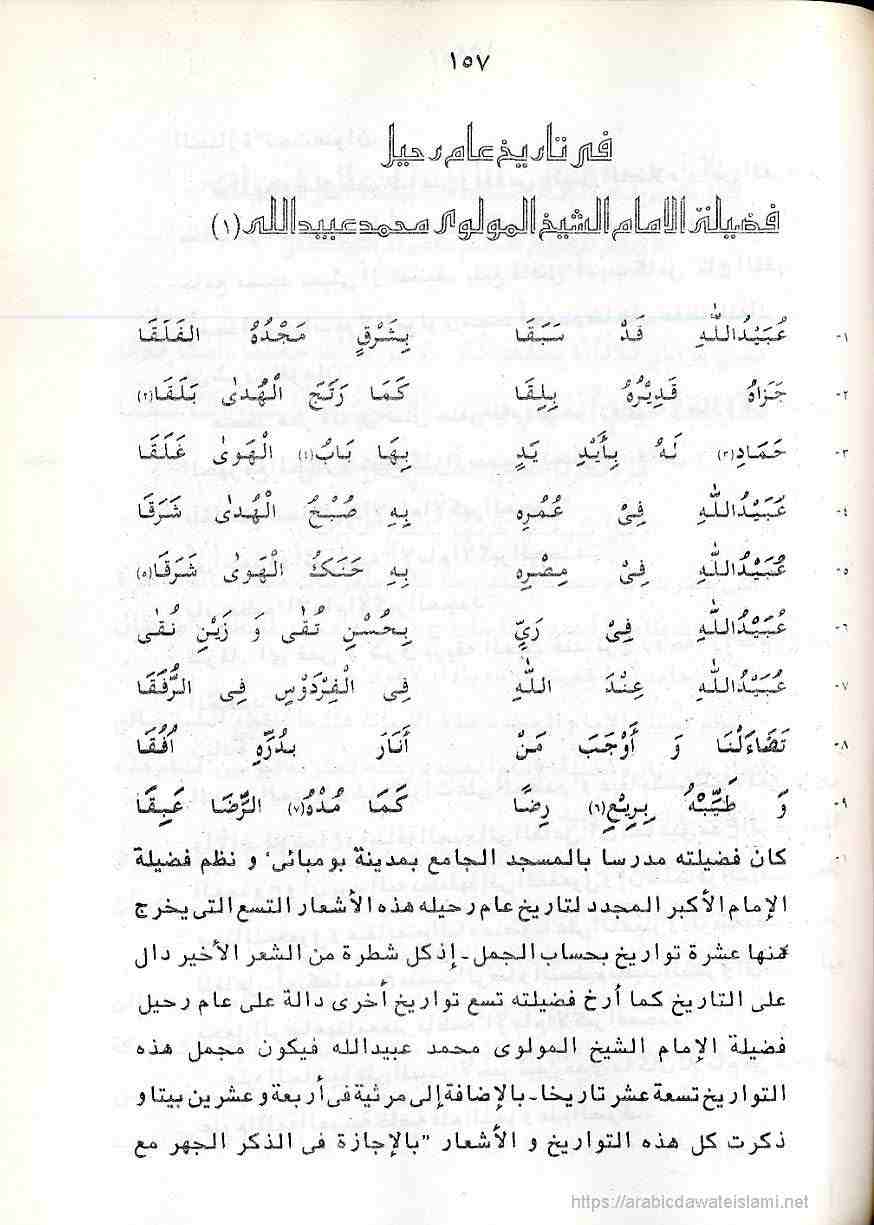 ١٥٧
فى تاريخ عام رحيل
فضيلة الامام الشيخ المولوى محمد عبيدالله (١)
١- عُبَيْدُاللّٰهِ قَدْ سَبَقَا بِشَرْقٍ مَجْدُهُ الفَلَقَا
٢- جَزَاهُ قَدِيْرُهُ بِلِقَا كَمَا رَتَجَ الْهُدىٰ بَلَقَا(٢)
٣- حَمَادِ(٣) لَهُ بِأَيْدِ يَدٍ بِهَا بَابُ(٤) الْهَوىٰ غَلَقَا
٤- عُبَيْدُاللّٰهِ فِىْ عُمُرِهِ بِهِ صُبْحُ الْهُدىٰ شَرَقَا
٥- عُبَيْدُاللّٰهِ فِىْ مِصْرِهِ بِهِ حَنَكُ الْهَوىٰ شَرَقَا(٥)
٦- عُبَيْدُاللّٰهِ فِىْ رَىٍّ بِحُسْنِ تُقٰى وَ زَيْنِ نُقٰى
٧- عُبَيْدُاللّٰهِ عِنْدَ اللّٰهِ فِى الْفِرْدَوْسِ فِى الرُّفَقَا
٨- تَضَاءَلْنَا وَ أَوْجَبَ مَنْ أَنَارَ بِدُرِّهِ أُفُقَا
٩- وَ طَيِّبْهُ بِرِيْعِ(٦) رِضًا كَمَا مُدْهُ(٧) الرِّضَا عَبِقَا
١- كان فضيلته مدرسا بالمسجد الجامع بمدينة بومبائى' و نظم فضيلة
الإمام الأكبر المجدد لتاريخ عام رحيله هذه الأشعار التسع التى يخرج
منها عشرة تواريخ بحساب الجمل - إذ كل شطرة من الشعر الأخير دال
على التاريخ كما أرخ فضيلته تسع تواريخ أخرى دالة على عام رحيل
فضيلة الإمام الشيخ المولوى محمد عبيدالله فيكون مجمل هذه
التواريخ تسعة عشر تاريخا - بالإضافة إلى مرثية فى أربعة و عشرين بيتا و
ذكرت كل هذه التواريخ و الأشعار "بالإجازة فى الذكر الجهر مع
https://arabicdawateislami.net